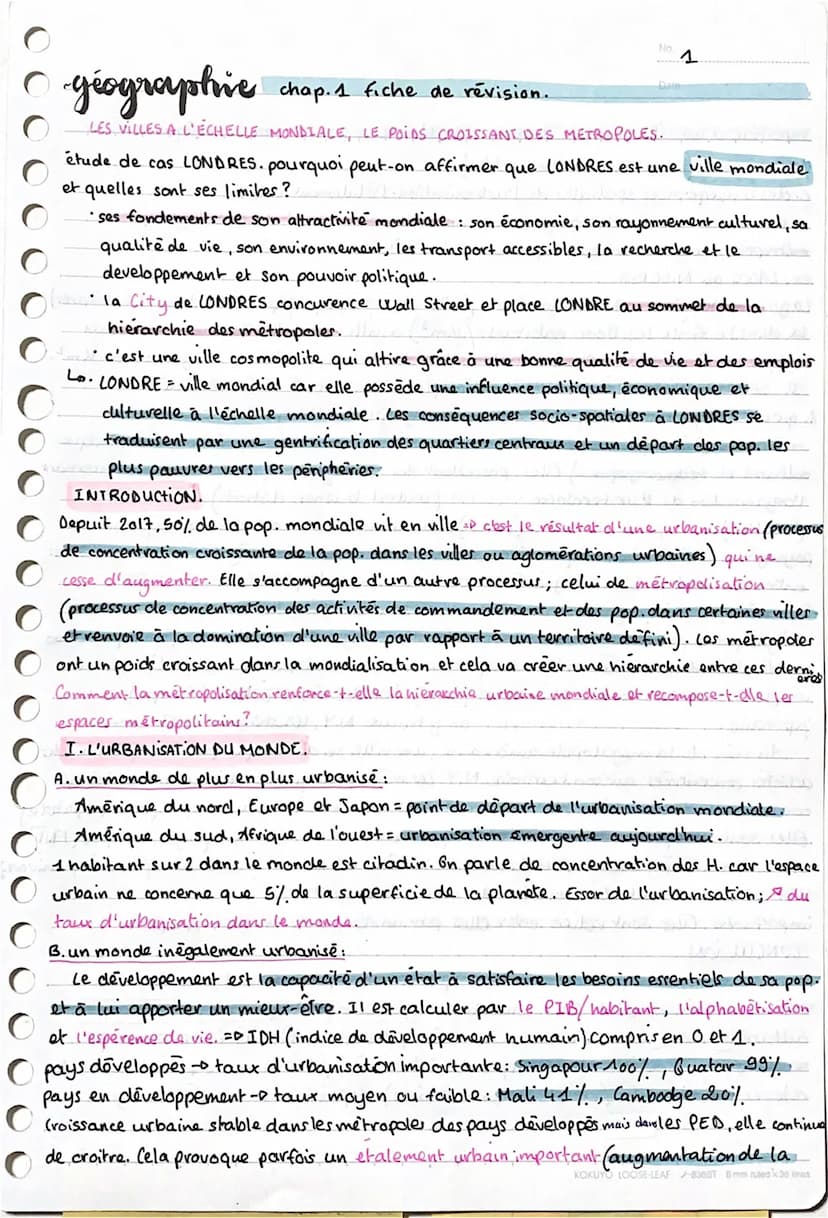 No. 1
Date
géographie chap.1 fiche de révision.
LES VILLES A L'ÉCHELLE MONDIALE, LE POIDS CROISSANT DES METROPOLES.
étude de cas LONDRES. pourquoi peut-on affirmer que LONDRES est une ville mondiale
et quelles sont ses limites ?
• ses fondements de son attractivité mondiale : son économie, son rayonnement culturel, sa
qualité de vie, son environnement, les transport accessibles, la recherche et le
developpement et son pouvoir politique.
• la City de LONDRES concurence Wall Street et place LONDRE au sommet de la
hiérarchie des métropoles.
• c'est une ville cosmopolite qui attire grâce à une bonne qualité de vie et des emplois
↳. LONDRE = ville mondial car elle possède une influence politique, économique et
culturelle à l'échelle mondiale. Les conséquences socio-spatiales à LONDRES se
traduisent par une gentrification des quartiers centraux et un départ des pop. les
plus pauvres vers les périphéries.
INTRODUCTION.
Depuit 2017, 50% de la pop. mondiale vit en ville => c'est le résultat d'une urbanisation (processus
de concentration croissante de la pop. dans les villes ou aglomérations urbaines) qui ne
cesse d'augmenter. Elle s'accompagne d'un autre processus ; celui de métropolisation
(processus de concentration des activités de commandement et des pop. dans certaines villes
et renvoie à la domination d'une ville par rapport à un territoire défini). Les métropoles
ont un poids croissant dans la mondialisation et cela va créer une hiérarchie entre ces dernières
Comment la métropolisation renforce-t-elle la hiérarchie urbaine mondiale et recompose-t-elle les
espaces métropolitains?
I. L'URBANISATION DU MONDE.
A. un monde de plus en plus urbanisé :
Amérique du nord, Europe et Japon = point de départ de l'urbanisation mondiale.
Amérique du sud, Afrique de l'ouest = urbanisation émergente aujourd'hui.
1 habitant sur 2 dans le monde est citadin. On parle de concentration des H. car l'espace
urbain ne concerne que 5% de la superficie de la planète. Essor de l'urbanisation ; ↗ du
taux d'urbanisation dans le monde.
B. un monde inégalement urbanisé :
Le développement est la capacité d'un état à satisfaire les besoins essentiels de sa pop.
et à lui apporter un mieux-être. Il est calculer par le PIB/habitant, l'alphabétisation
et l'espérence de vie. => IDH (indice de développement humain) compris en 0 et 1.
pays développés → taux d'urbanisation importante : Singapour 100%, Quatar 99%.
pays en développement → taux moyen ou faible : Mali 41%, Cambodge 20%.
Croissance urbaine stable dans les métropoles des pays développés mais dans les PED, elle continue
de croitre. Cela provoque parfois un étalement urbain important (augmentation de la
KOKUYO LOOSE-LEAF ノ-836BT 6 mm ruled × 36 lines